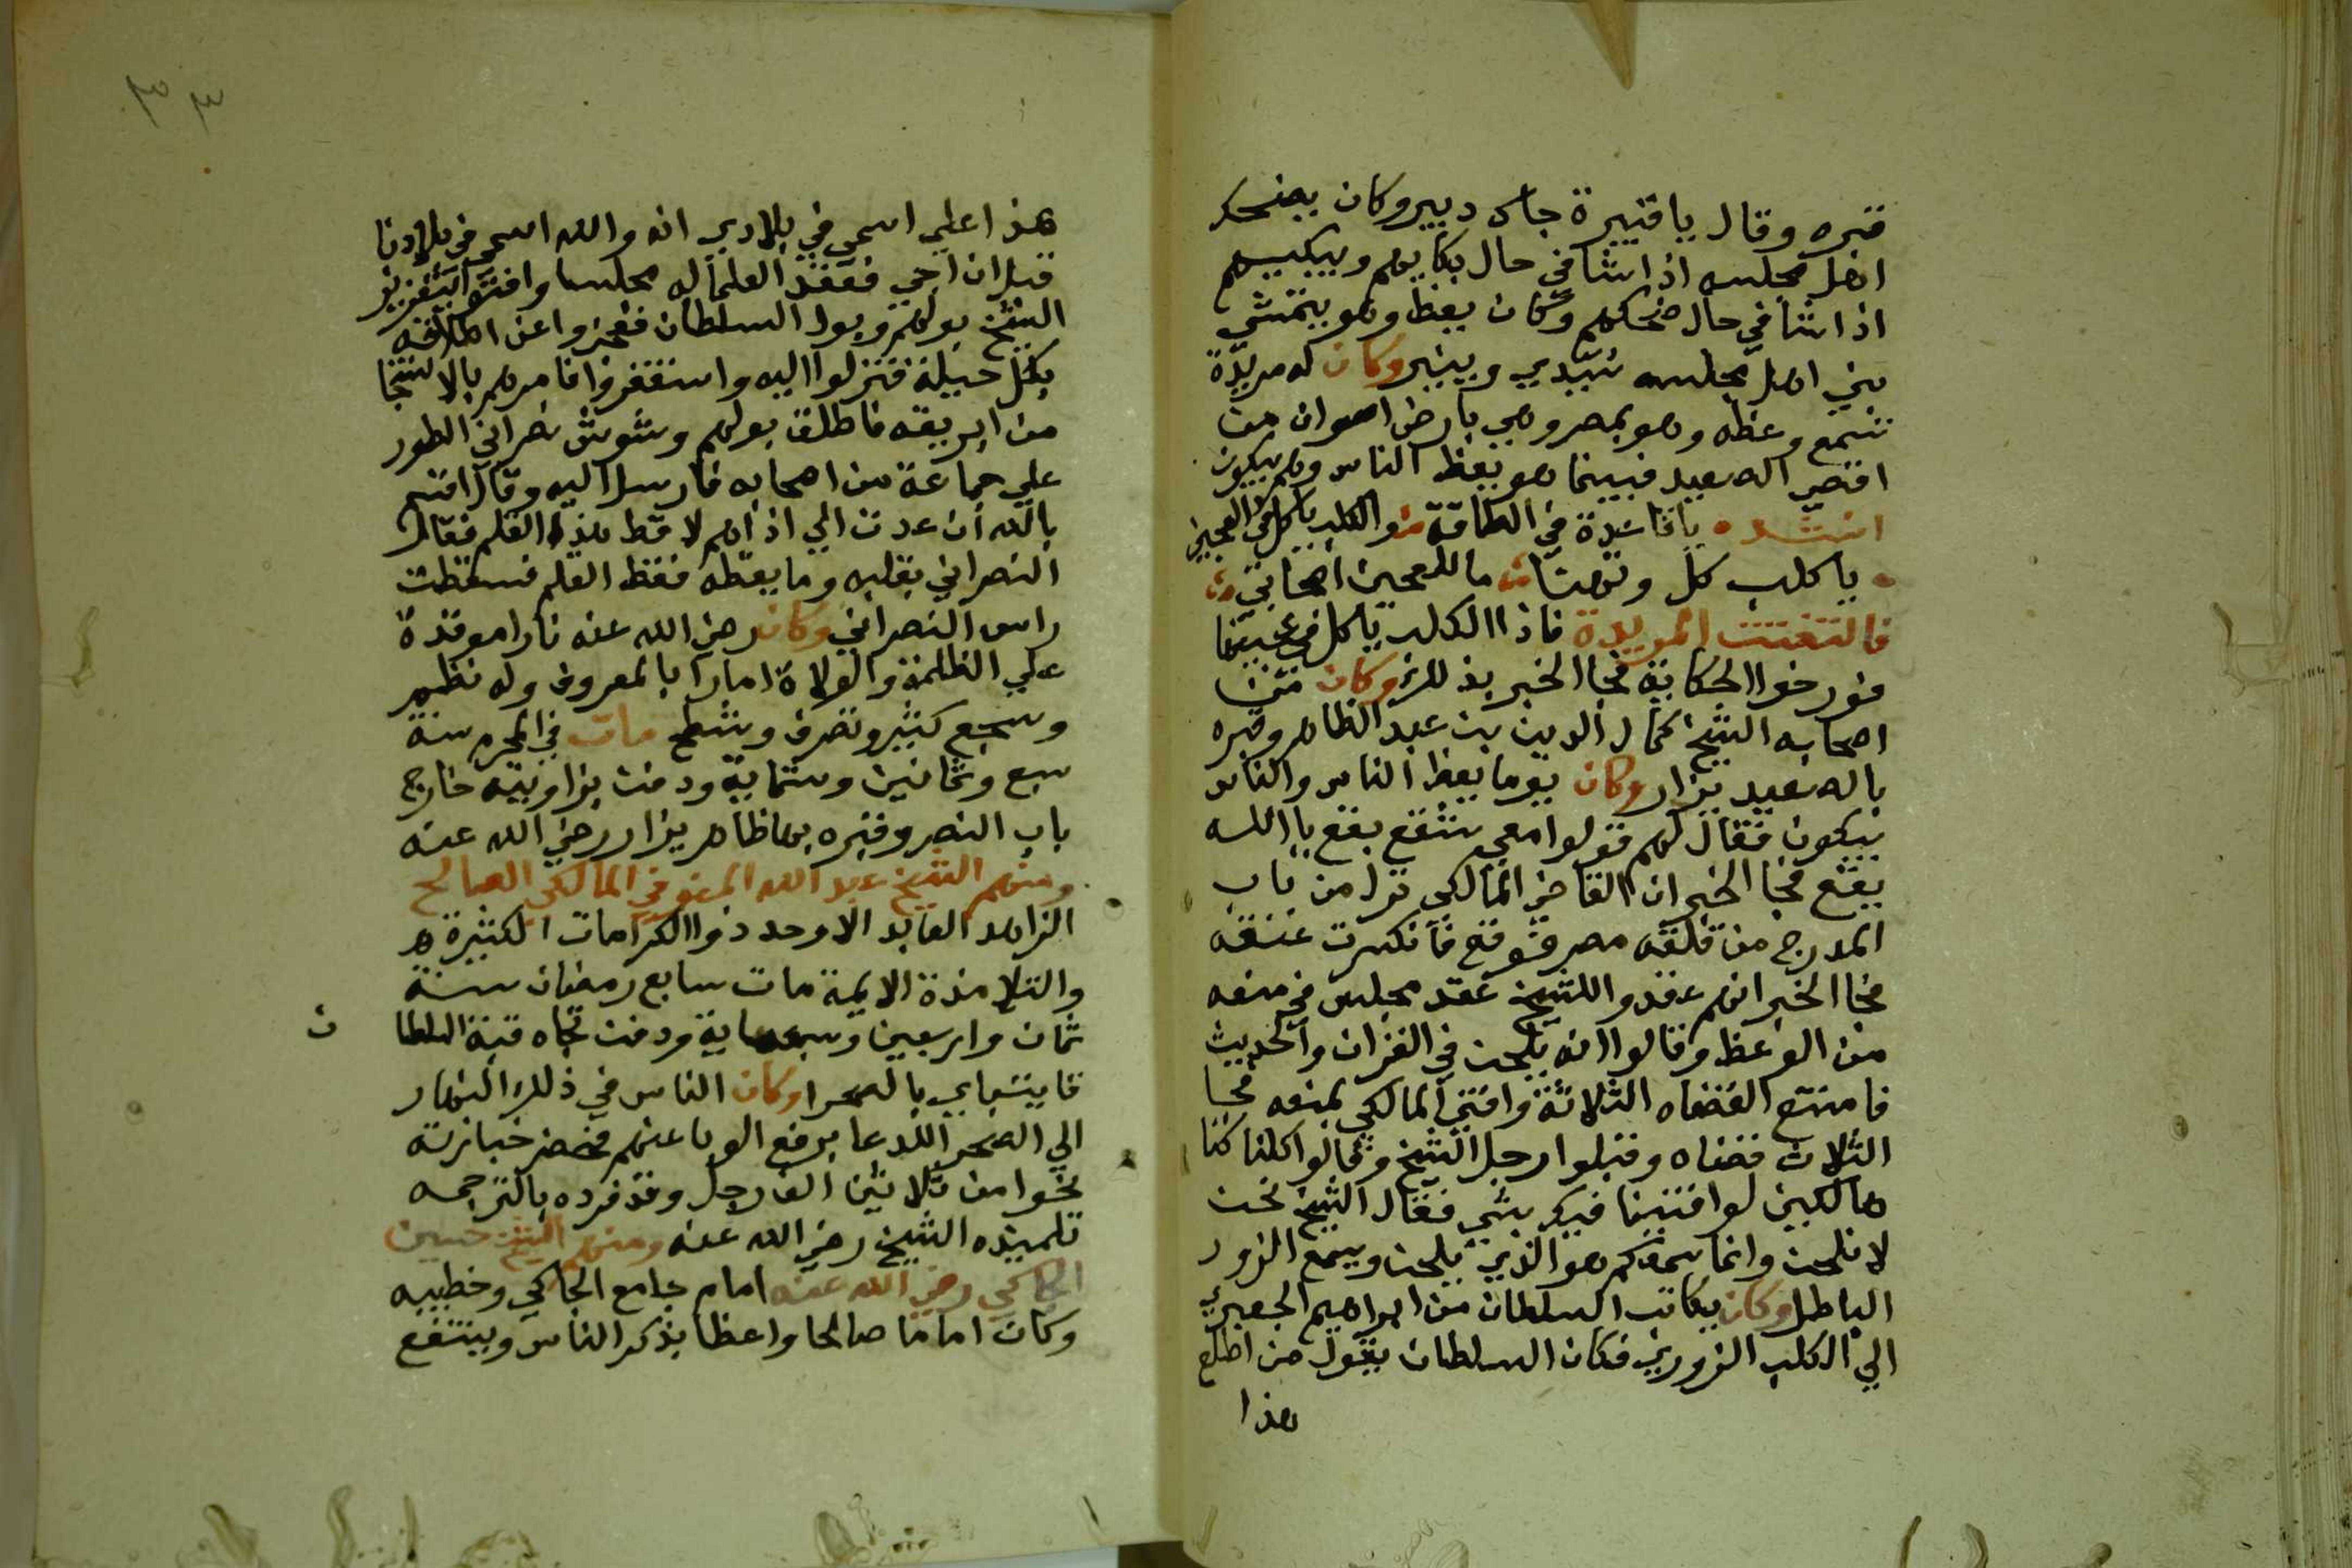 قبره وقال ياقبيرة جاك دبير وكان يضحك
اهل مجلسه اذا شا في حال بكايهم ويبكيهم
اذا شا في حال ضحكهم وكان يعظ وهو يتمشي
بين اهل مجلسه يسدي وينير وكان له مريدة
تسمع وعظه وهو بمصر وهي بارض اسوان من
اقصي الصعيد فبينما هو يعظ الناس وهم يبكون
انشد يا قاعدة في الطاقة والكلب ياكل في العجين
يا كلب كل وتهنا ما للعجين اصحابي
فالتفتت المريدة فاذا الكلب ياكل في عجينها
فورخوا الحكاية فجا الخبر بذلك وكان من
اصحابه الشيخ كمال الدين بن عبد الظاهر وقبره
بالصعيد يزار وكان يوما يعظ الناس والناس
يبكون فقال لهم قولوا معي شقع بقع يا الله
يقع فجا الخبر ان القاضي المالكي نزل من باب
المدرج من قلعة مصر فوقع فانكسرت عنقه
فجا الخبر انهم عقدوا للشيخ عقد مجلس في منعه
من الوعظ وقالوا انه يلحن في القران والحديث
فامتنع القضاه الثلاثة وافتي المالكي بمنعه فجا
الثلاث قضاه وقبلوا رجل الشيخ وقالوا كلنا كنا
هالكين لو افتينا فيك بشي فقال الشيخ نحن
لا نلحن وانما سمعكم هو الذي يلحن ويسمع الزور
الباطل وكان يكاتب السلطان من ابراهيم الجعبري
الي الكلب الزوبري فكان السلطان يقول من اطلع
هذا
٣٣
هذا علي اسمي في بلادي انه والله اسمي في بلادنا
قبل ان اجي فعقد العلما له مجلسا وافتوا بتعزير
الشيخ بولهم وبول السلطان فعجزوا عن اطلاقه
بكل حيلة فنزلوا اليه واستغفروا فامرهم بالاستنجا
من ابريقه فاطلق بولهم وشوش نصراني الطور
علي جماعة من اصحابه فارسل اليه وقال اقسم
بالله ان عدت الي اذاهم لاقط هذا القلم فقال
النصراني بقلبه وما يقطه فقط القلم فسقطت
راس النصراني وكان رضي الله عنه نارا موقدة
علي الظلمة والولاة امارا بالمعروف وله نظم
وسجع كثير وتصرف وشطح مات في المحرم سنة
سبع وثمانين وستماية ودفن بزاويته خارج
باب النصر وقبره بها ظاهر يزار رضي الله عنه
ومنهم الشيخ عبد الله المنوفي المالكي الصالح
الزاهد العابد الاوحد ذوا الكرامات الكثيرة
والتلامذة الايمة مات سابع رمضان سنة
ثمان واربعين وسبعماية ودفن تجاه قبة السلطان
قايتباي بالصحرا وكان الناس في ذلك النهار
الي الصحرا للدعا برفع الوبا عنهم فحضر جنازته
نحوا من ثلاثين الف رجل وقد فرده بالترجمه
تلميذه الشيخ رضي الله عنه ومنهم الشيخ حسين
الجاكي رضي الله عنه امام جامع الجاكي وخطيبه
وكان اماما صالحا واعظا يذكر الناس وينتفع